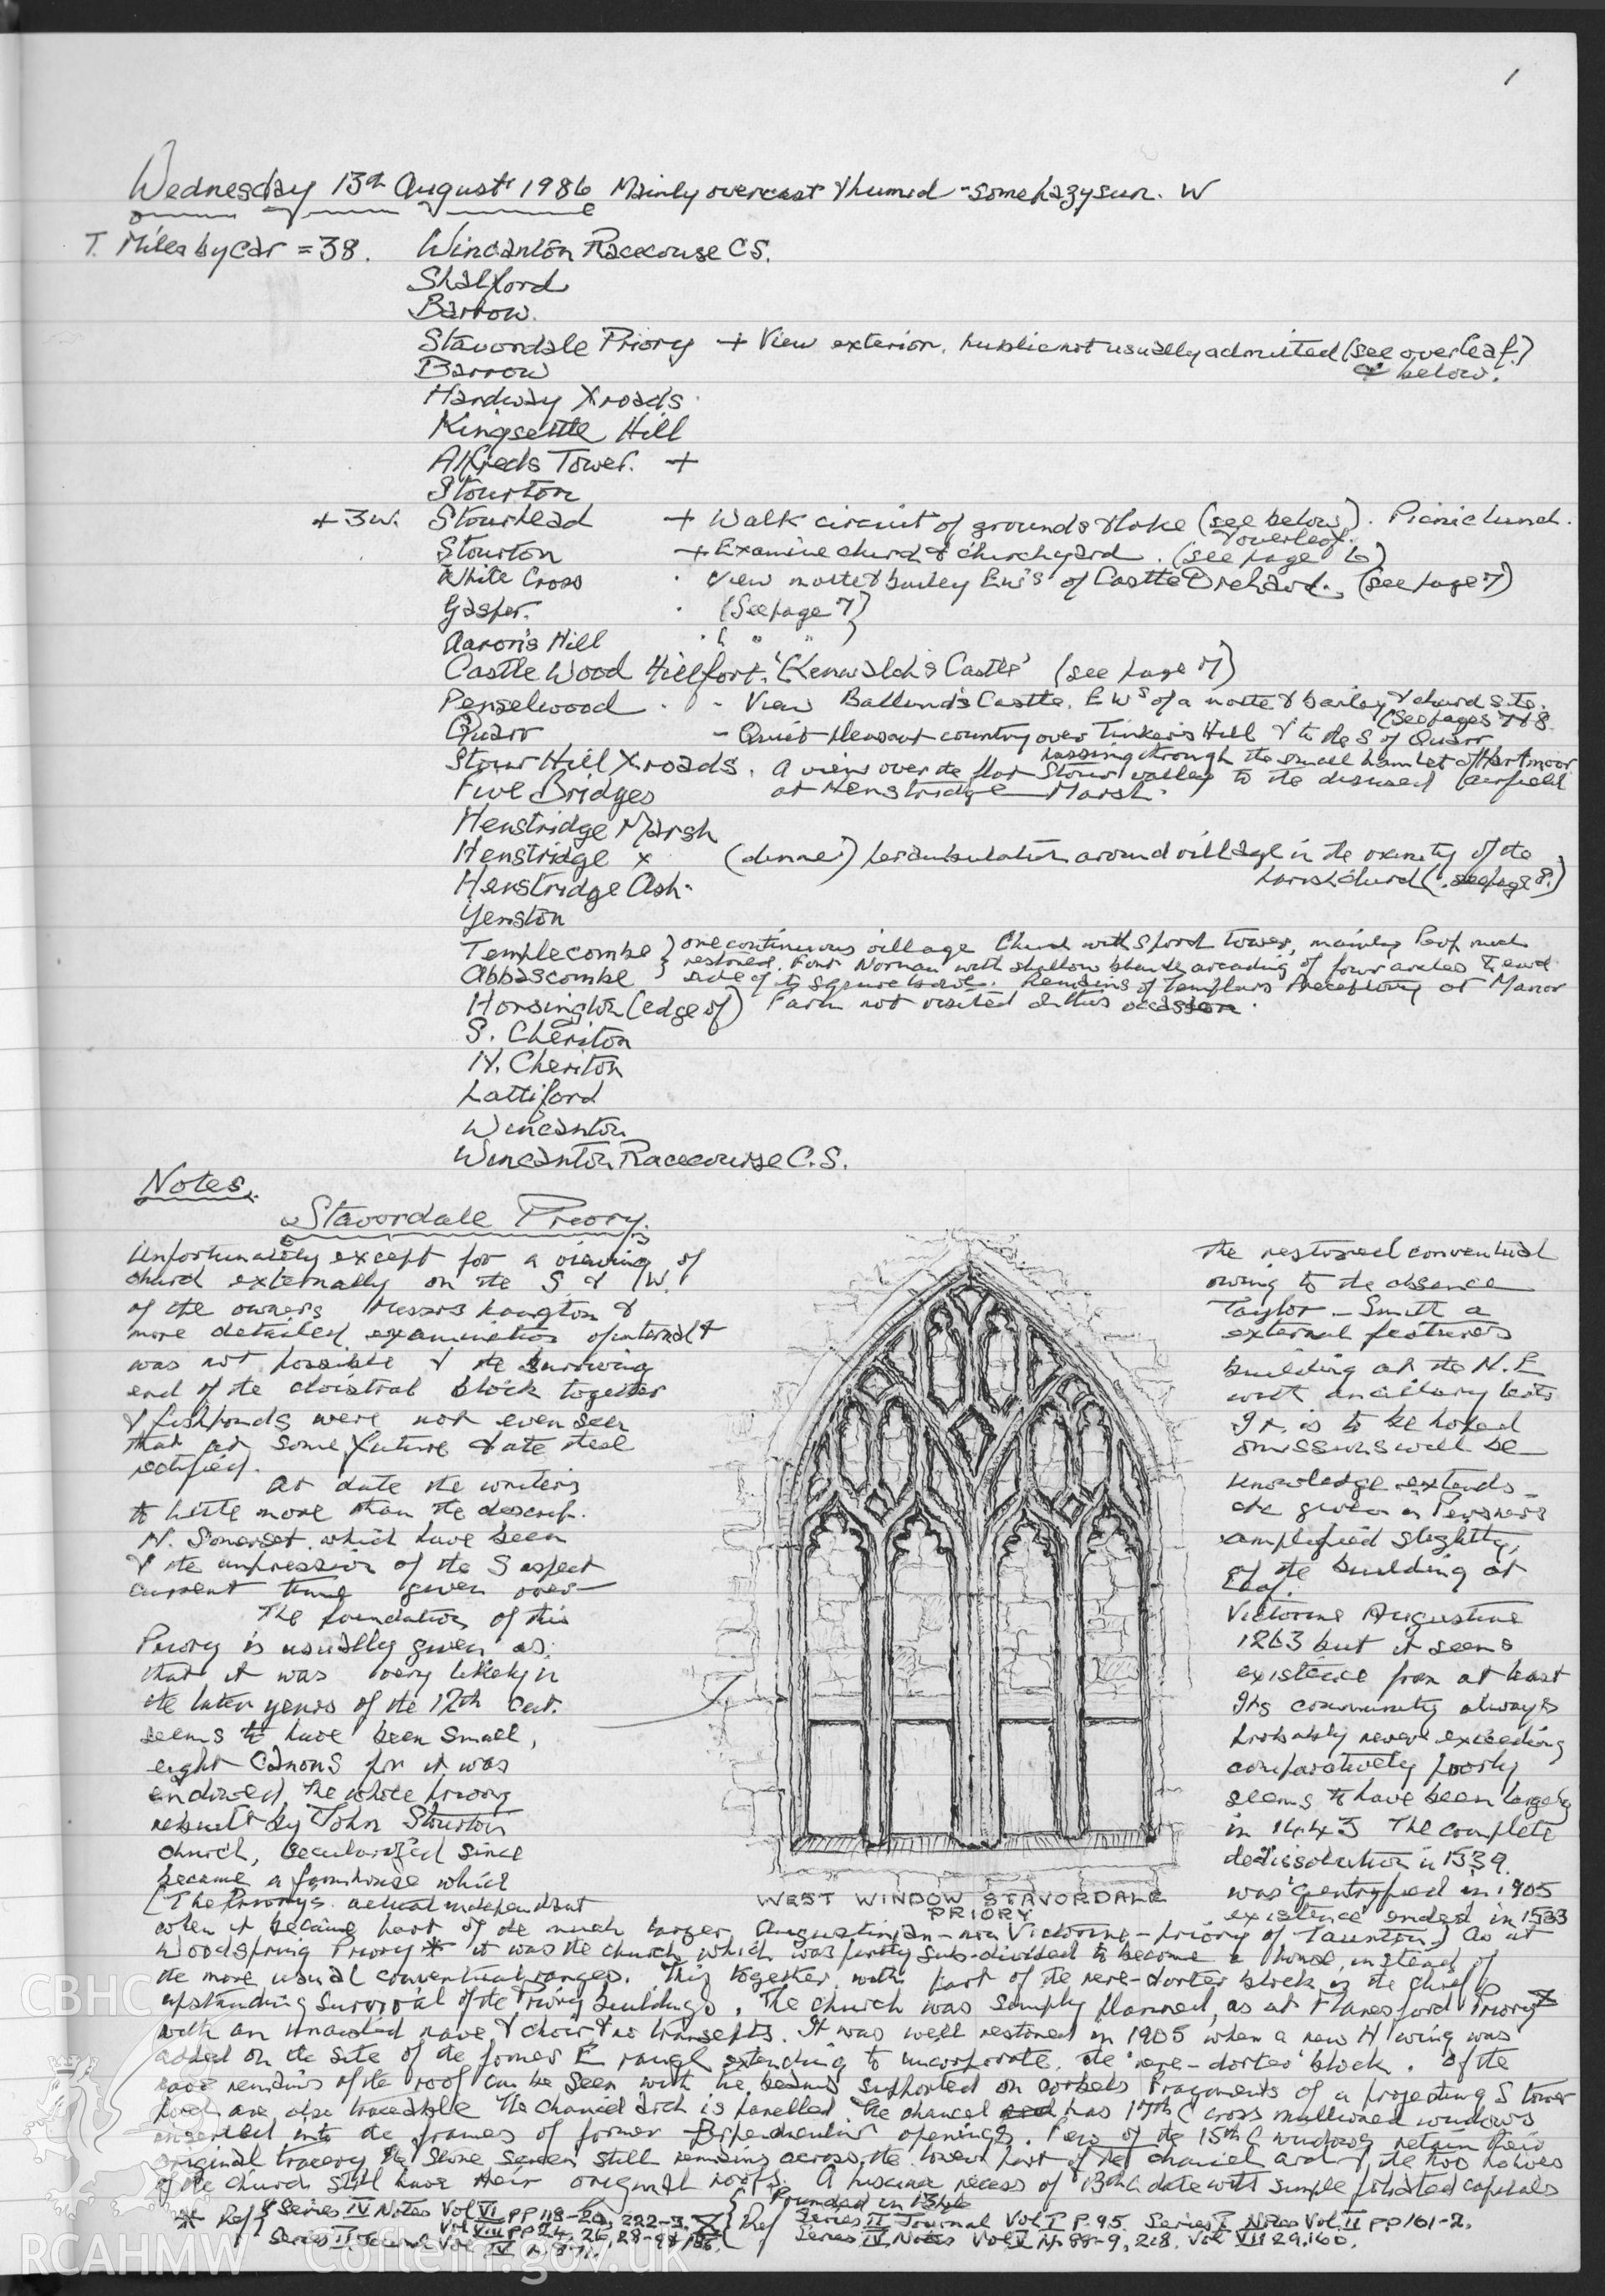 1
Wednesday 13th August 1986 Mainly overcast & humid - some hazy sun. W
T. Miles by car = 38. Wincanton Racecourse C.S.
Shalford
Barrow.
Stavordale Priory + View exterior, public not usually admitted (see overleaf)
Barrow & below.
Hardway Xroads
Kingsettle Hill
Alfreds Tower. +
Stourton
+ 3w. Stourhead + Walk circuit of grounds & lake (see below). Picnic lunch.
& overleaf.
Stourton + Examine church & churchyard. (see page 6)
White Cross . View motte & bailey Ews of Castle Orchard. (see page 7)
Gasper. . (See page 7)
Aaron's Hill . ( " " )
Castle Wood Hillfort. 'Kenwalch's Castle' (see page 7)
Penselwood . - View Ballands Castle. EWs of a motte & bailey & church site.
(See pages 7 & 8
Quarr - Quiet pleasant country over Tinkers Hill & to the S of Quarr
passing through the small hamlet of Hartmoor
Stour Hill Xroads. A view over the flat Stour valley to the disused airfield
Five Bridges at Henstridge Marsh.
Henstridge Marsh
Henstridge x (dinner) perambulation around village in the vicinity of the
Henstridge Ash. parish church (see page 8.)
Yenston
Templecombe } one continuous village Church with S porch tower, mainly Perp much
Abbascombe } restored. Font Norman with shallow blank arcading of four arches to each
side of its square bowl. Remains of Templars Preceptory at Manor
Horsington (edge of) Farm not visited on this occasion.
S. Cheriton
N. Cheriton
Lattiford
Wincanton
Wincanton Racecourse C.S.
Notes.
Stavordale Priory.
Unfortunately except for a viewing of the restored conventual
church externally on the S & W. owing to the absence
of the owners Messrs Langton & Taylor - Smith a
more detailed examination of internal & external features
was not possible & the surviving building at the N.E
end of the cloistral block together with ancillary
& fishponds were not even seen It is to be hoped
that at some future date these omissions will be
rectified.
At date the writer's knowledge extends
to little more than the descrip. are given in Pevsners
N. Somerset which have been amplified slightly,
& the impression of the S aspect of the building at
current time given over- leaf.
The foundation of this Victorine Augustine
Priory is usually given as 1263 but it seems
that it was very likely in existence from at least
the later years of the 12th cent. Its community always
seems to have been small, probably never exceeding
eight Canons for it was comparatively poorly
endowed, the whole priory seems to have been largely
rebuilt by John Stourton in 1443 The complete
church, secularized since dedissolution in 1539.
became a farmhouse which was 'gentryfied' in 1905
[The Priory's actual independent existence ended in 1533
WEST WINDOW STAVORDALE
PRIORY
when it became part of the much larger Augustinian - non Victorine - priory of Taunton.] As at
Woodspring Priory * it was the church which was partly sub-divided to become a house, instead of
the more usual conventual ranges. This together with part of the rere-dorter block is the chief
upstanding survival of the Priory buildings. The church was simply planned, as at Flanesford Priory
with an unaisled nave, & choir & no transepts. It was well restored in 1905 when a new N wing was
added on the site of the former E range extending to incorporate the 'rere-dorter' block. Of the
nave remains of the roof can be seen with tie beams supported on corbels Fragments of a projecting S tower
porch are also traceable The chancel arch is panelled. The chancel has 17th C cross mullioned windows
inserted into the frames of former Perpendicular openings. Few of the 15th C windows retain their
original tracery, the stone screen still remains across the lower part of the chancel arch & the two halves
of the church still have their original roofs. A piscina recess of 13th C date with simple foliated capitals
* Ref { Series IV Notes Vol VI pp 118-20, 222-3,
Vol VIII pp
Founded in
Ref Series II Journal Vol I P. 95. Series Notes Vol. II pp 161-2.
Series IV Notes Vol
CBHC
RCAHMW
Coflein.gov.uk